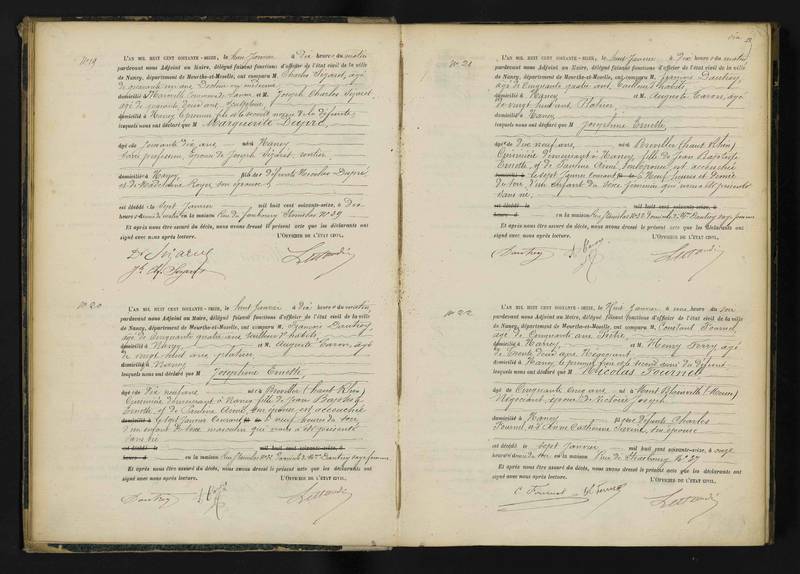 N° 19
L'AN MIL HUIT CENT SOIXANTE-SEIZE, le huit Janvier à Dix heures du matin
pardevant nous Adjoint au Maire, délégué faisant fonctions d'officier de l'état civil de la ville
de Nancy, département de Meurthe-et-Moselle, ont comparu M. Charles Sizaret, âgé
de quarante ans, Docteur en médecine
domicilié à et M. Joseph Charles Sizaret
âgé de quarante deux ans
domicilié à Nancy le premier fils et le second neveu de la défunte,
lesquels nous ont déclaré que M Marguerite Dupré,
âgée de soixante dix ans, née à Nancy
sans profession, épouse de Joseph Sizaret, rentier
domiciliée à Nancy, fille des défunts Nicolas Dupré,
et de Madelaine Royer son épouse
est décédée le sept Janvier mil huit cent soixante-seize, à dix
heures du matin en la maison Rue du faubourg Stanislas N° 39
Et après nous être assuré du décès, nous avons dressé le présent acte que les déclarants ont
signé avec nous après lecture. L'OFFICIER DE L'ÉTAT CIVIL,
Dr Sizaret
N° 20
L'AN MIL HUIT CENT SOIXANTE-SEIZE, le huit Janvier à Dix heures du matin
pardevant nous Adjoint au Maire, délégué faisant fonctions d'officier de l'état civil de la ville
de Nancy, département de Meurthe-et-Moselle, ont comparu M. François Dautrey,
âgé de Cinquante quatre ans tailleur d'habits
domicilié à Nancy et M. Auguste Caron, âgé
de vingt huit ans, platrier
domicilié à Nancy
lesquels nous ont déclaré que M Joséphine Ernette,
âgée de Dix neuf ans née à (haut Rhin)
Cuisinière demeurant à Nancy fille de Jean Baptiste
Ernette, et de Pauline son épouse est accouchée
le sept Janvier Courant à neuf heures du soir
d'un enfant du sexe masculin qui nous a été présenté
sans vie
est décédé le mil huit cent soixante-seize, à
heures d en la maison Dautrey sage femme
Et après nous être assuré du décès, nous avons dressé le présent acte que les déclarants ont
signé avec nous après lecture. L'OFFICIER DE L'ÉTAT CIVIL,
Dautrey
N° 21
L'AN MIL HUIT CENT SOIXANTE-SEIZE, le huit Janvier à Dix heures du matin
pardevant nous Adjoint au Maire, délégué faisant fonctions d'officier de l'état civil de la ville
de Nancy, département de Meurthe-et-Moselle, ont comparu M. François Dautrey,
âgé de Cinquante quatre ans, tailleur d'habits
domicilié à Nancy et M. Auguste Caron, âgé
de vingt huit ans, Platrier
domicilié à Nancy
lesquels nous ont déclaré que M Joséphine Ernette,
âgée de Dix neuf ans, née à (haut Rhin)
Cuisinière demeurant à Nancy, fille de Jean Baptiste
Ernette, et de Pauline son épouse est accouchée
le sept Janvier courant à Neuf heures et demie
du soir, d'un enfant du sexe féminin qui nous a été présenté
sans vie
est décédé le mil huit cent soixante-seize, à
heures d en la maison Dautrey sage femme
Et après nous être assuré du décès, nous avons dressé le présent acte que les déclarants ont
signé avec nous après lecture. L'OFFICIER DE L'ÉTAT CIVIL,
Dautrey
N° 22
L'AN MIL HUIT CENT SOIXANTE-SEIZE, le Huit Janvier à une heure du soir
pardevant nous Adjoint au Maire, délégué faisant fonctions d'officier de l'état civil de la ville
de Nancy, département de Meurthe-et-Moselle, ont comparu M. Constant Fournel,
âgé de Cinquante ans
domicilié à Nancy et M. Henry Ferry, âgé
de trente deux ans, Négociant
domicilié à Nancy, le premier frère et le second ami du défunt
lesquels nous ont déclaré que M Nicolas Fournel
âgé de Cinquante Cinq ans né à Mont (Meuse)
Négociant, époux de Victoire Joseph
domicilié à Nancy fils de défunts Charles
Fournel, et Anne Catherine son épouse
est décédé le sept Janvier mil huit cent soixante-seize, à onze
heures du soir, en la maison Rue de Strasbourg N° 27
Et après nous être assuré du décès, nous avons dressé le présent acte que les déclarants ont
signé avec nous après lecture. L'OFFICIER DE L'ÉTAT CIVIL,
C Fournel